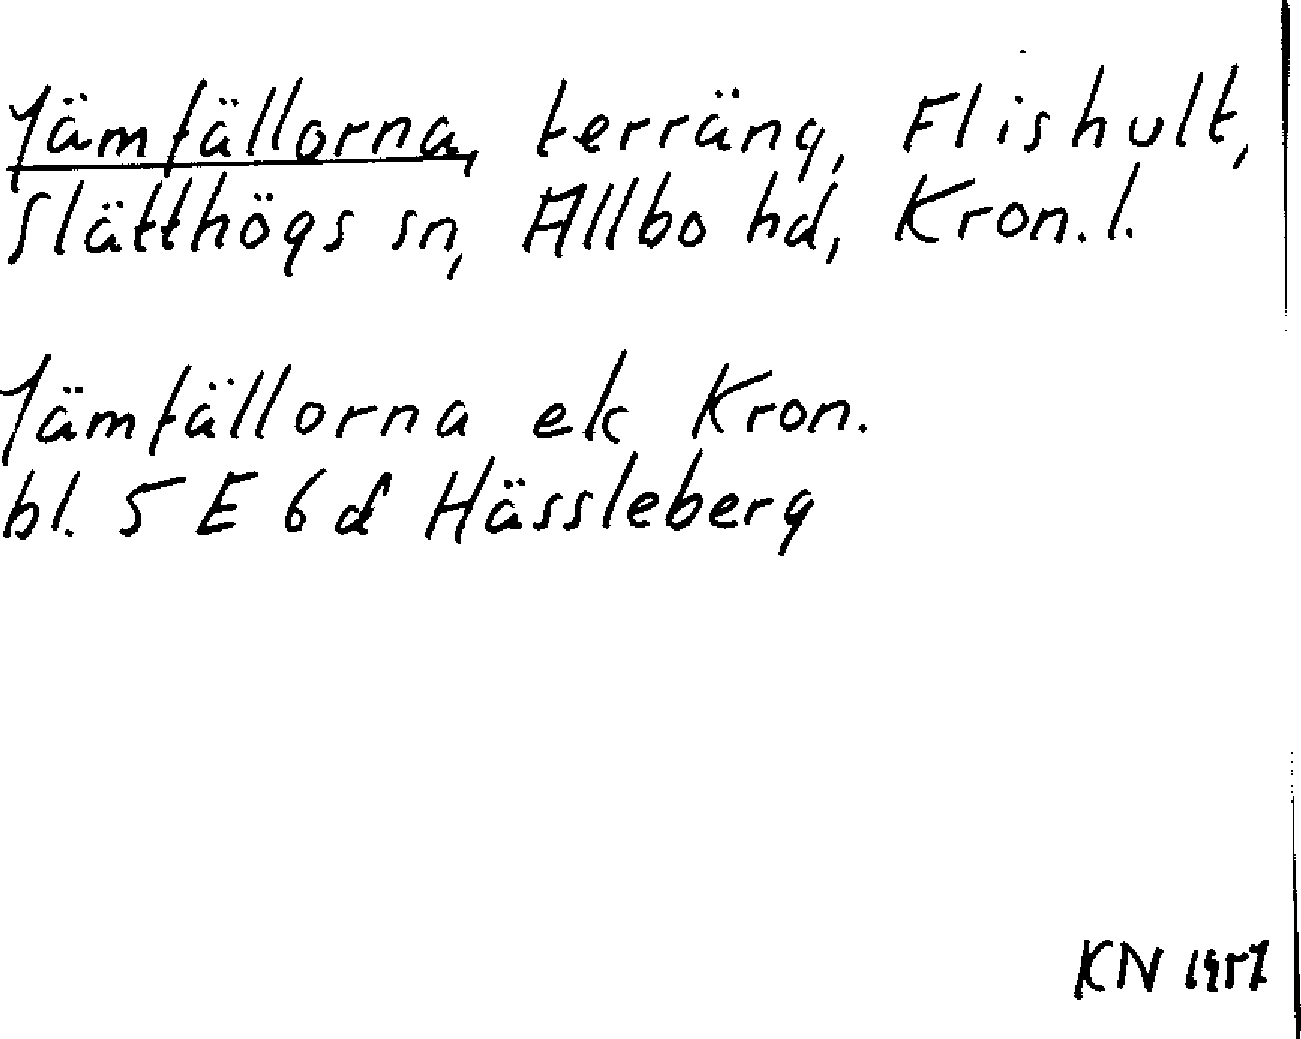 Jämfällorna, terräng, Flishult,
Slätthögs sn, Allbo hd, Kron. l.
Jämfällorna ek Kron.
bl. 5 E 6 d Hässleberg
KN 1957